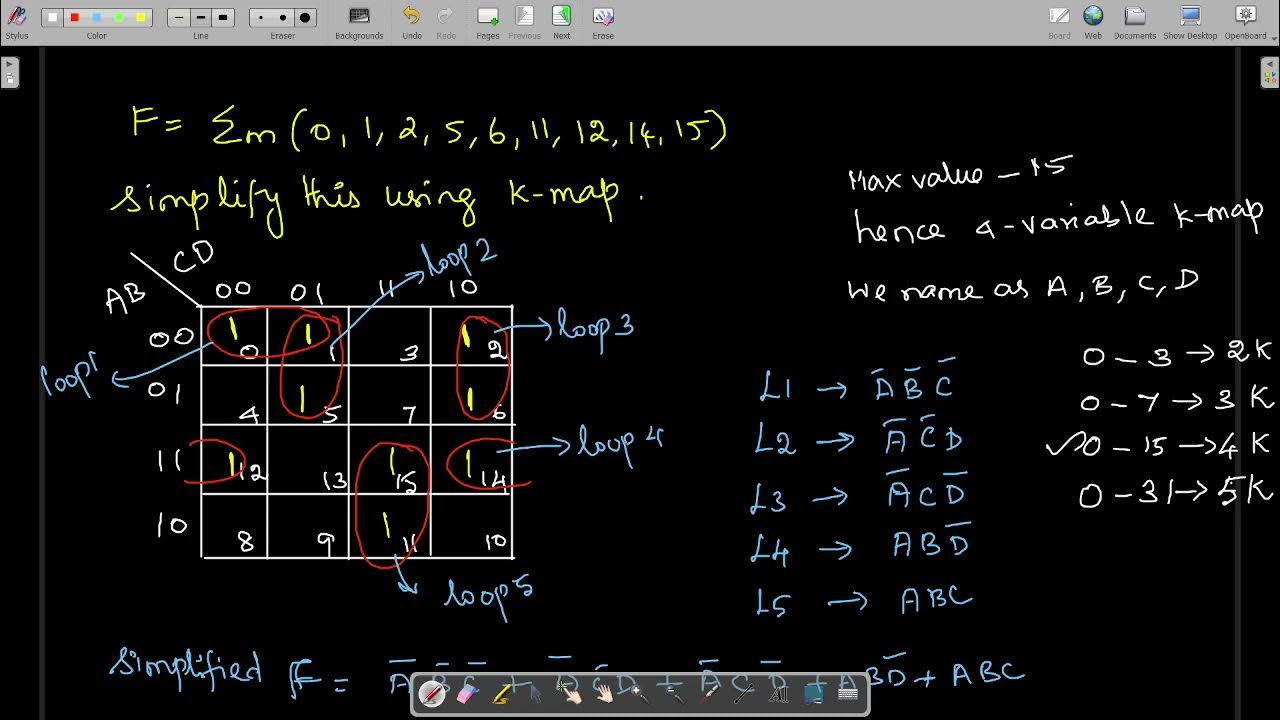 Stylus Color Line Eraser Backgrounds Undo Redo Pages Previous Next Erase Board Web Documents Show Desktop OpenBoard
F = Σm (0, 1, 2, 5, 6, 11, 12, 14, 15)
Simplify this using K-map.
Max value - 15
hence 4-variable K-map
We name as A, B, C, D
0 - 3 → 2K
0 - 7 → 3K
✓ 0 - 15 → 4K
0 - 31 → 5K
CD
AB
00 01 11 10
00 1 0 1 1 3 1 2
01 4 1 5 7 1 6
11 1 12 13 1 15 1 14
10 8 9 1 11 10
loop1
loop2
loop3
loop4
loop5
L1 → A̅ B̅ C̅
L2 → A̅ C̅ D
L3 → A̅ C D̅
L4 → A B D̅
L5 → ABC
Simplified F = A̅ B̅ C̅ + A̅ C̅ D + A̅ C D̅ + A B D̅ + ABC